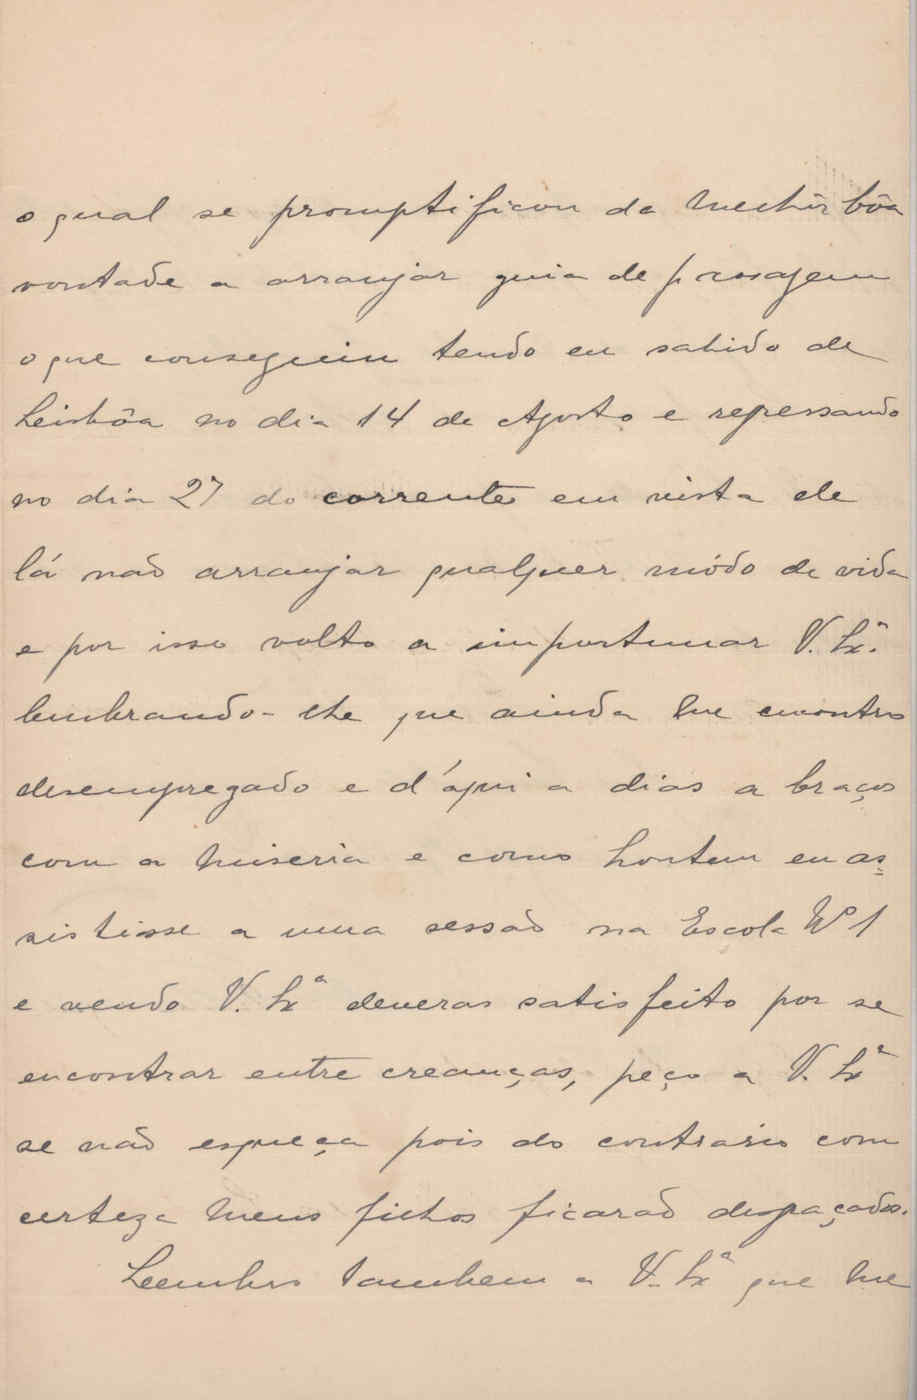 o qual se promptificou da melhôr bôa
vontade a arranjar guia de passagem
o que conseguiu tendo eu sahido de
Leisbôa no dia 14 de Agosto e regressando
no dia 27 do corrente em vista de
lá não arranjar qualquer módo de vida
e por isso volto a importunar V. Exª.
lembrando-lhe que ainda me encontro
desempregado e d'áqui a dias a braços
com a miseria e como hontem eu as=
sistisse a uma sessão na Escola Nº 1
e vendo V. Exª deveras satisfeito por se
encontrar entre creanças, peço a V. Exª
se não esqueça pois do contrario com
certeza meus filhos ficarão desgraçados.
Leembro tambem a V. Exª que me